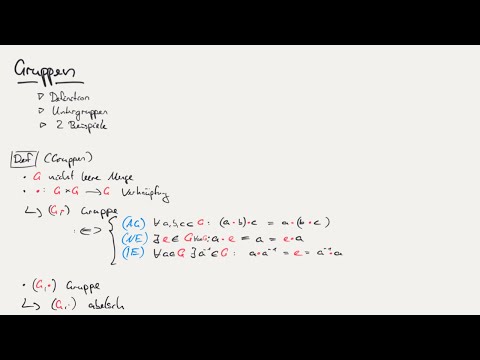 Gruppen
▷ Definition
▷ Untergruppen
▷ 2 Beispiele
Def (Gruppen)
• G nicht leere Menge
• •: G × G → G Verknüpfung
↳ (G,•) Gruppe
:⇔ { (AG) ∀ a,b,c ∈ G: (a•b)•c = a•(b•c)
(NE) ∃ e ∈ G ∀a∈G: a•e = a = e•a
(IE) ∀a∈G ∃ a⁻¹ ∈ G: a•a⁻¹ = e = a⁻¹•a
• (G,•) Gruppe
↳ (G,•) abelsch